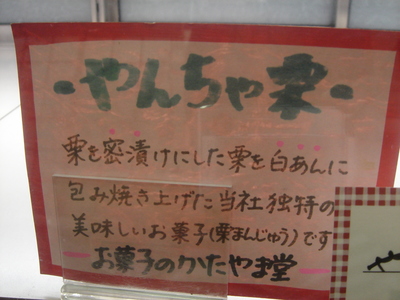 -やんちゃ栗-
栗を密漬けにした栗を白あんに
包み焼き上げた当社独特の
美味しいお菓子(栗まんじゅう)です
お菓子のかたやま堂
や